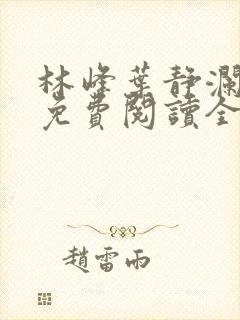 林峰葉靜瀾
免費閱讀全
趙雷雨